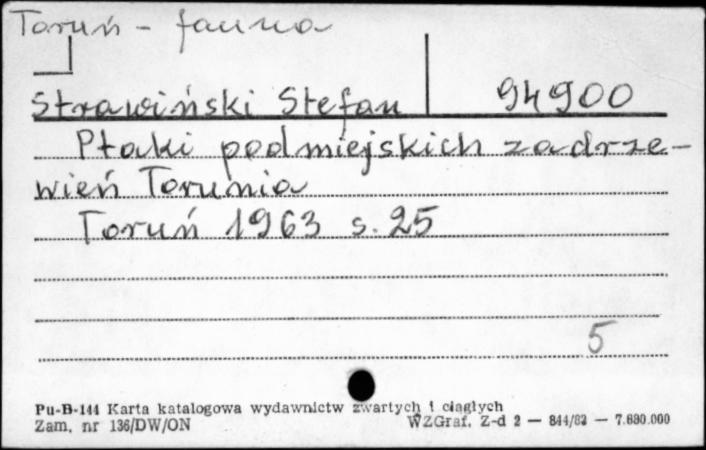 Toruń - fauna
Strawiński Stefan 94900
Ptaki podmiejskich zadrze-
wień Torunia
Toruń 1963 s. 25
5
Pu-B-144 Karta katalogowa wydawnictw zwartych i ciągłych
Zam. nr 136/DW/ON WZGraf. Z-d 2 — 844/82 — 7.680.000